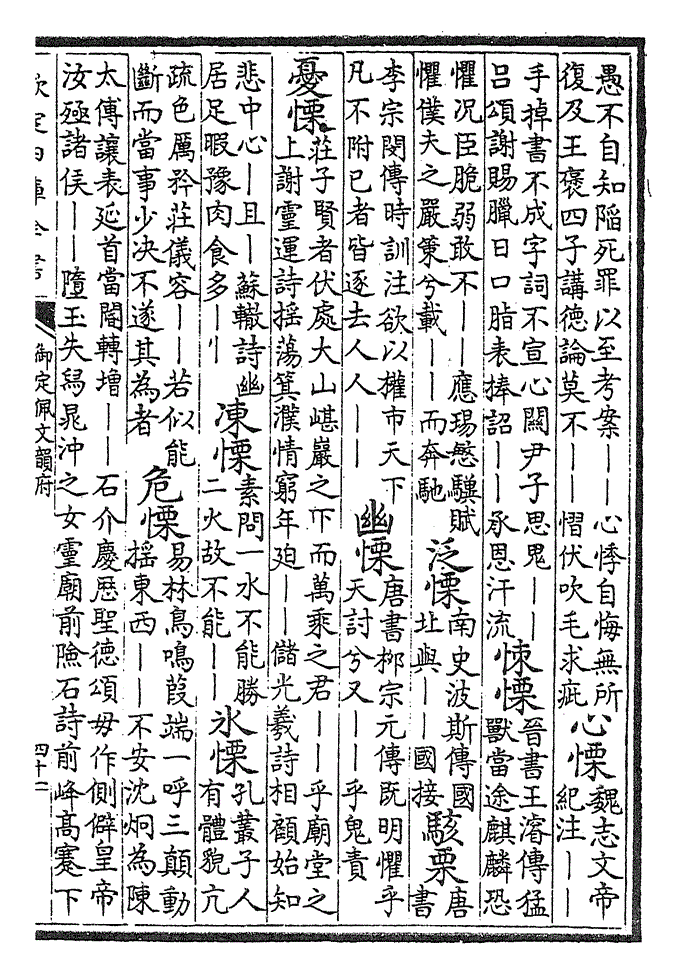 愚不自知陷死罪以至考案――心悸自悔無所
復及王褒四子講德論莫不――慴伏吹毛求疵
心慄
魏志文帝
紀注――
手掉書不成字詞不宣心關尹子思鬼――
呂頌謝賜臘日口脂表捧詔――承恩汗流
悚慄
晉書王濬傳猛
獸當途麒麟恐
懼況臣脆弱敢不――應瑒慜驥賦
懼僕夫之嚴策兮載――而奔馳
泛慄
南史波斯傳國
址與――國接
駭栗
唐
書
李宗閔傳時訓注欲以權市天下
凡不附已者皆逐去人人――
幽慄
唐書柳宗元傳既明懼乎
天討兮又――乎鬼責
憂慄
莊子賢者伏處大山嵁巖之下而萬乘之君――乎廟堂之
上謝靈運詩搖蕩箕濮情窮年廹――儲光羲詩相顧始知
悲中心―且―蘇轍詩幽
居足暇豫肉食多――
凍慄
素問一水不能勝
二火故不能――
氷慄
孔叢子人
有體貌亢
疏色厲矜莊儀容――若似能
斷而當事少决不遂其為者
危慄
易林鳥鳴葭端一呼三顛動
搖東西――不安沈炯為陳
太傅讓表延首當閽轉增――石介慶厯聖德頌毋作側僻皇帝
汝殛諸侯――隳王失舄晁沖之女靈廟前險石詩前峰高蹇下
欽定四庫全書
御定佩文韻府
四十二